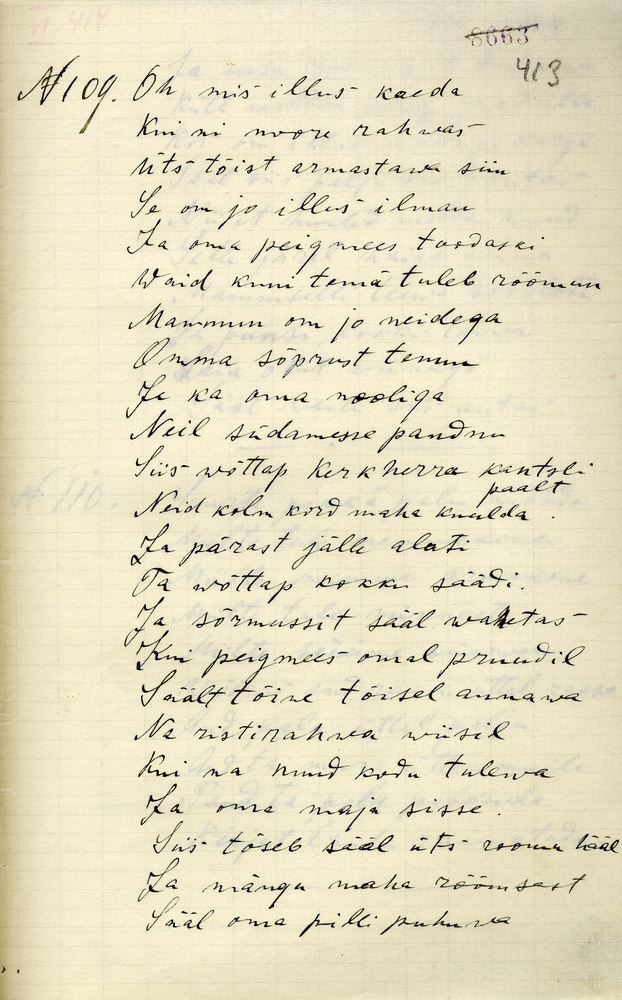 VI 414
8663
413
N 109. Oh mis illus kaeda
Kui ni noore rahwas
Üts tõist armastawa siin
Se om jo illus ilman
Ja oma peigmees toodaski
Waid kuni temä tuleb rõõmun
Mammun om jo neidega
Omma sõprust tennu
Ja ka oma nooliga
Neil südamesse pandnu
Siis wõttap Kerkherra kantsli
paalt
Neid kolm kord maha kuulda.
Ja pärast jälle alati
Ta wõttap kokku säädi.
Ja sõrmussit sääl wahetas
Kui peigmees omal pruudil
Säält tõine tõisel annawa
Na ristirahwa wiisil
Kui na nuud kodu tulewa
Ja oma maja sisse.
Siis tõseb sääl üts roomu hääl
Ja mängu maha rõõmsast
Sääl oma pilli puhuwa